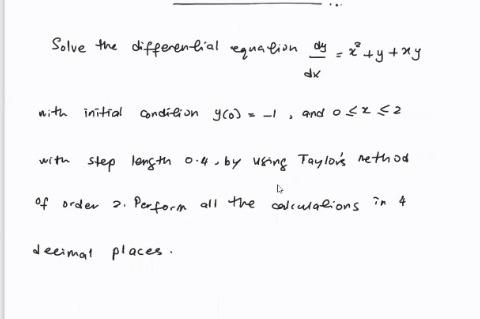 Solve the differential equation dy/dx = x² + y + xy
with initial condition y(0) = -1, and 0 ≤ x ≤ 2
with step length 0.4, by using Taylor's method
of order 2. Perform all the calculations in 4
decimal places.